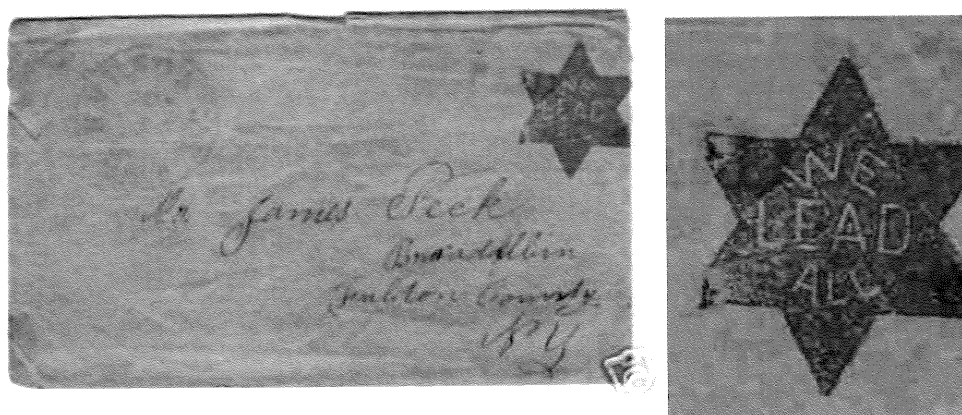 WE
LEAD
ALL
Mr James Peck
Broadalbin
Fulton County
NY
WE
LEAD
ALL